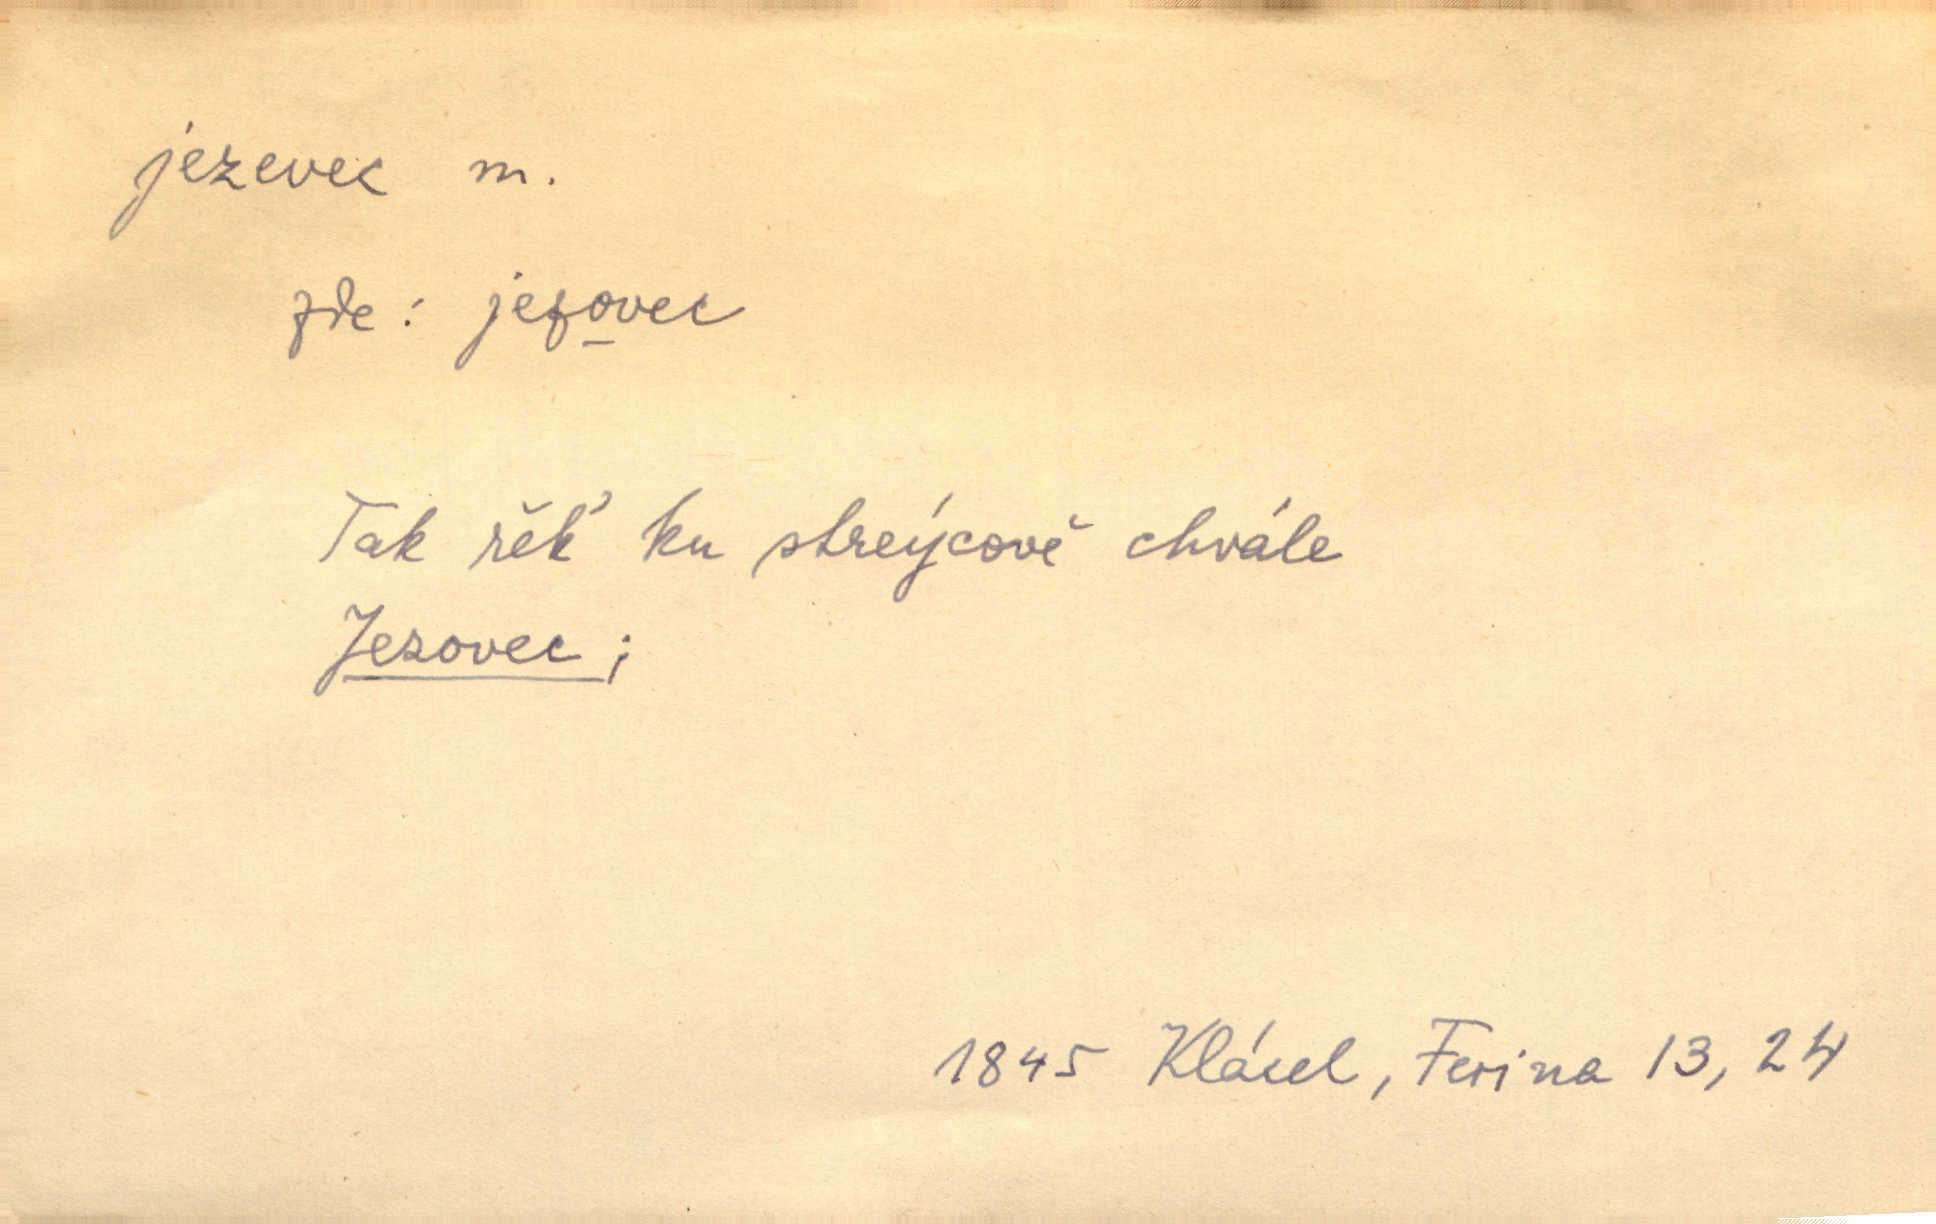 jezevec m.
zde: jezovec
Tak řěk' ku streýcově chvále
Jezovec;
1845 Klácel, Ferina 13, 24